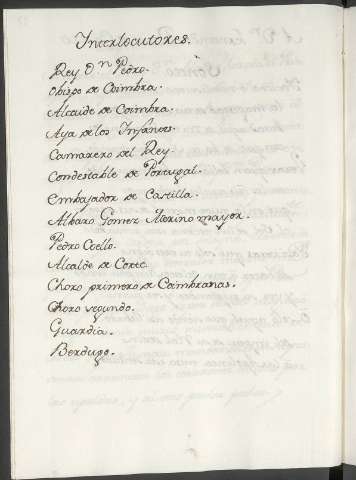 Interlocutores.
Rey D.n Pedro.
Obispo de Coimbra.
Alcaide de Coimbra.
Aya de los Infantes.
Camarero del Rey.
Condestable de Portugal.
Embajador de Castilla.
Albaro Gomez Merino mayor.
Pedro Coello.
Alcalde de Corte
Choro primero de Coimbranas.
Choro segundo.
Guardia.
Berdugo.